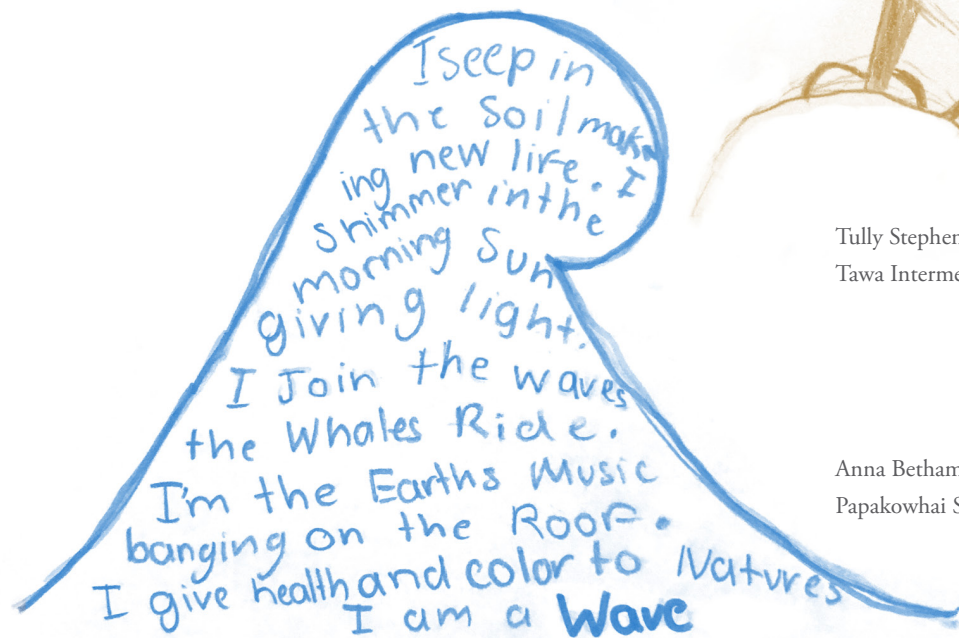 I seep in
the Soil mak
ing new life. I
shimmer in the
morning Sun
giving light.
I Join the waves
the Whales Ride.
I'm the Earths Music
banging on the Roof.
I give health and color to Natures
I am a Wave
Tully Stephen
Tawa Interme
Anna Betham
Papakowhai S